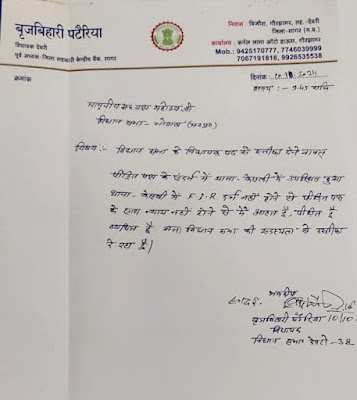 बृजबिहारी पटैरिया
विधायक देवरी
पूर्व अध्यक्ष-जिला सहकारी केन्द्रीय बैंक, सागर
निवास : बिजौरा, गौरझामर, तह.-देवरी
जिला-सागर (म.प्र.)
कार्यालय : कर्नल सागर ऑटो डाऊन, गौरझामर
मो.: 9425170777, 7746039999
7067191818, 9926535538
क्रमांक
दिनांक 10.10.2024
समय :- 9.45 रात्रि
माननीय अध्यक्ष महोदय जी
विधान सभा - भोपाल (म०प्र०)
विषय :- विधान सभा के विधायक पद से स्तीफा देने बावत
पीड़ित पक्ष के संदर्भ में थाना - केसली में उपस्थित हुआ
थाना - केसली में F.I.R दर्ज नहीं होने से पीड़ित पक्ष
के साथ न्याय नहीं होने से मैं आहत हूँ, पीड़ित हूँ
व्यथित हूँ अतः विधान सभा की सदस्यता से स्तीफा
दे रहा हूँ।
सादर
भवदीय
बृजबिहारी पटैरिया 10/10
विधायक
विधान सभा देवरी - 38